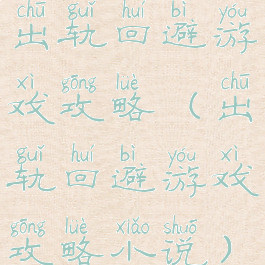 chū guǐ huí bì yóu
出轨回避游
xì gōng lüè chū
戏攻略（出
guǐ huí bì yóu xì
轨回避游戏
gōng lüè xiǎo shuō
攻略小说）